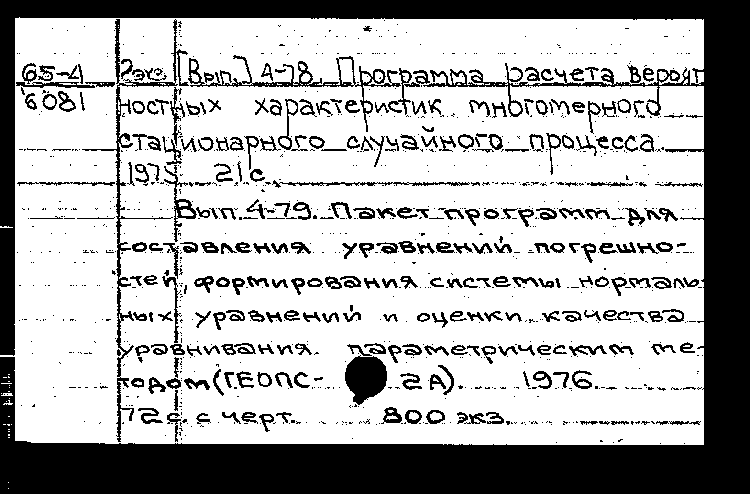 65-4 2экз [Вып.] 4-78. Программа расчета вероят
6081 ностных характеристик многомерного
стационарного случайного процесса
1975 21 с.
Вып. 4-79. Пакет программ для
составления уравнений погрешно-
стей, формирования системы нормаль-
ных уравнений и оценки качества
уравнивания параметрическим ме-
тодом (ГЕОПС- 2А). 1976.
72 с. с черт. 800 экз.